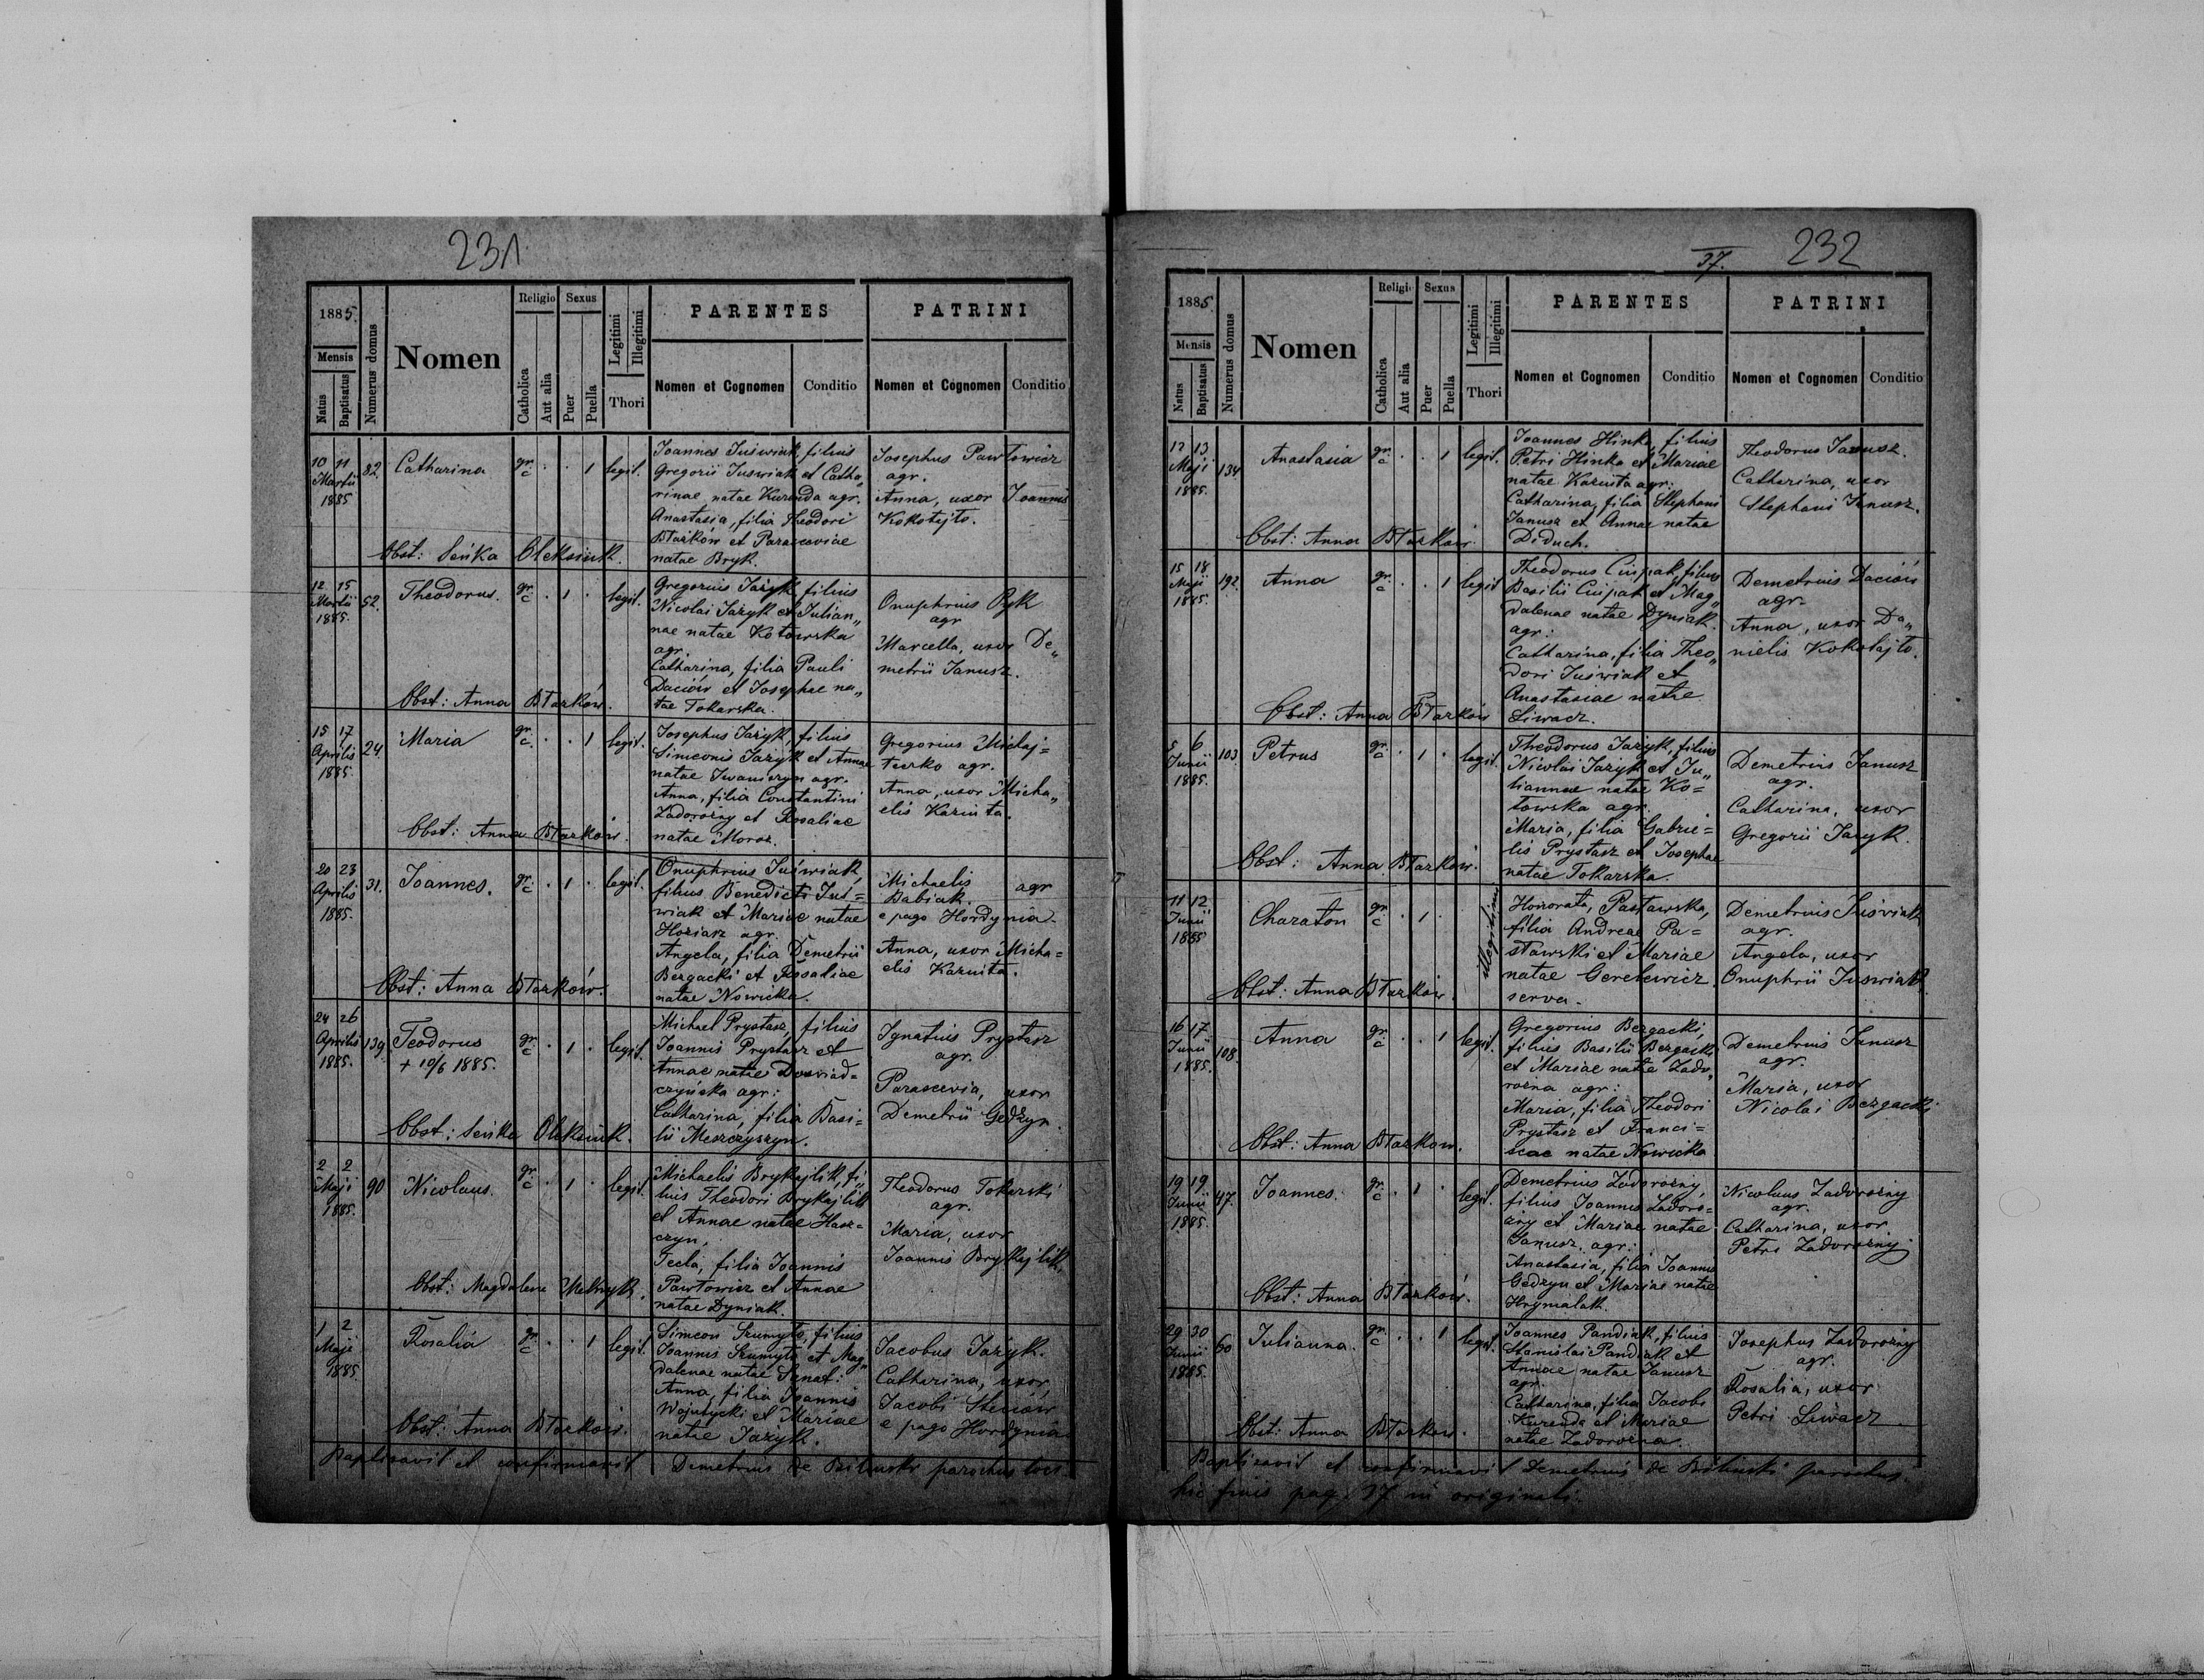 231
1885.
Religio
Sexus
Legitimi
Illegitimi
PARENTES
PATRINI
Mensis
Natus
Baptisatus
Numerus domus
Nomen
Catholica
Aut alia
Puer
Puella
Thori
Nomen et Cognomen
Conditio
Nomen et Cognomen
Conditio
10 11
Martii
1885
82.
Catharina
gr. c
1
legit.
Joannes Juświak, filius
Gregorii Juświak et Catha„
rinae, natae Kurenda agr.
Anastasia, filia Theodori
Błażków et Parasceviae
natae Bryk.
Josephus Pawłowicz
agr.
Anna, uxor Joannis
Kokotajło.
Obst: Seńka Oleksiuk.
12 15
Martii
1885.
52.
Theodorus.
gr. c
1
legit.
Gregorius Jazyk filius
Nicolai Jazyk et Julian„
nae natae Kotowska
agr.
Catharina, filia Pauli
Daciów et Josephae na„
tae Tokarska.
Onuphrius Pyk
agr
Marcella, uxor De„
metrii Janusz.
Obst: Anna Błażków.
15 17
Aprilis
1885.
24.
Maria
gr. c.
1
legit.
Josephus Jazyk, filius
Simeonis Jazyk et Annae
natae Iwaniszyn agr.
Anna, filia Constantini
Zadorożny et Rosaliae
natae Moroz.
Gregorius Mielaj=
agr.
Anna, uxor Micha„
elis Kazuita.
Obst: Anna Błażków.
20 23
Aprilis
1885.
31.
Joannes.
gr. c
1
legit.
Onuphrius Juświak,
filius Benedicti Juś=
wiak et Mariae natae
Hoziasz agr.
Angela, filia Demetrii
Bezgacki et Rosaliae
natae Nowicka.
Michaelis agr
Babiak.
e pago Hordynia
Anna, uxor Micha=
elis Kazuita.
Obst: Anna Błażków.
24 26
Aprilis
1885.
139.
Teodorus
+ 10/6 1885.
gr. c
1
legit.
Michael Prystasz, filius
Joannis Prystasz et
Annae natae Doswiad=
czyńska agr:
Catharina, filia Basi=
lii Meszczyszyn.
Ignatius Prystasz
agr.
Parascevia, uxor
Demetrii Gedzyn.
Obst: Seńka Oleksiuk.
2 2
Maji
1885.
90
Nicolaus.
gr. c
1
legit.
Michaelis Brykajlik, fi„
lius Theodori Brykajlik
et Annae natae Hasz=
czyn.
Tecla, filia Joannis
Pawłowicz et Annae
natae Dyniak.
Theodorus Tokarski
agr.
Maria, uxor
Joannis Brykajlik.
Obst: Magdalena Melnyk.
1 2
Maji
1885.
Rosalia
gr. c
1
legit.
Simeon Szumyło, filius
Joannis Szumyło et Mag„
dalenae natae Senat:
Anna, filia Joannis
Wojutycki et Mariae
natae Jazyk.
Jacobus Jazyk.
Catharina, uxor
Jacobi Steciów
e pago Hordynia
Obst: Anna Błażków.
Baptisavit et confirmavit Demetrius de Biliński parochus loci
37.
232
1885.
Religio
Sexus
Legitimi
Illegitimi
PARENTES
PATRINI
Mensis
Natus
Baptisatus
Numerus domus
Nomen
Catholica
Aut alia
Puer
Puella
Thori
Nomen et Cognomen
Conditio
Nomen et Cognomen
Conditio
12 13
Maji
1885.
134
Anastasia
gr. c
1
legit.
Joannes Hinka, filius
Petri Hinka et Mariae
natae Kazuita agr:
Catharina, filia Stephani
Janusz et Annae natae
Diduch.
Theodorus Janusz.
Catherina, uxor
Stephani Janusz.
Obst: Anna Błażków.
15 18
Maji
1885.
192.
Anna
gr. c
1
legit
Theodorus Ciupak filius
Basilii Ciupak et Mag„
dalenae natae Dyniak.
agr:
Catharina, filia Theo„
dori Juświak et
Anastasiae natae
Siwacz.
Demetrius Daciów
agr.
Anna, uxor Da„
nielis Kokotajło.
Obst: Anna Błażków
5 6
Junii
1885.
103
Petrus
gr. c
1
legit.
Theodorus Jazyk, filius
Nicolai Jazyk et Ju„
liannae natae Ko=
towska agr.
Maria, filia Gabrie=
lis Prystasz et Josephae
natae Tokarska.
Demetrius Janusz
agr.
Catharina, uxor
Gregorii Jazyk.
Obst: Anna Błażków.
11 12
Junii
1885
Charaton
gr. c
1
illegitim
Honorata, Pastawska,
filia Andreae Pa=
stawski et Mariae
natae Gerelewicz
serva.
Demetrius Juświak
agr.
Angela, uxor
Onuphrii Juświak.
Obst: Anna Błażków.
16 17
Junii
1885.
108.
Anna
gr. c
1
legit.
Gregorius Bezgacki,
filius Basilii Bezgacki
et Mariae natae Zado„
rożna agr:
Maria, filia Theodori
Prystasz et Franci=
scae natae Nowicka
Demetrius Janusz
agr.
Maria, uxor
Nicolai Bezgacki
Obst: Anna Błażków.
19 19
Junii
1885.
47.
Joannes.
gr. c
1
legit.
Demetrius Zadorożny,
filius Joannis Zadoro=
żny et Mariae natae
Janusz. agr:
Anastasia, filia Joannis
Gedzyn et Mariae natae
Hrymalak.
Nicolaus Zadorożny
agr.
Catharina, uxor
Petri Zadorożny
Obst: Anna Błażków.
29 30
Junii
1885.
60
Julianna.
gr. c
1
legit.
Joannes Pandiak, filius
Stanislai Pandiak et
Annae natae Janusz
agr.
Catharina, filia Jacobi
Kurenda et Mariae
natae Zadorożna.
Josephus Zadorożny
agr.
Rosalia, uxor
Petri Siwacz
Obst: Anna Błażków.
Baptisavit et confirmavit Demetrius de Biliński parochus.
hic finis pag. 37 in originali.